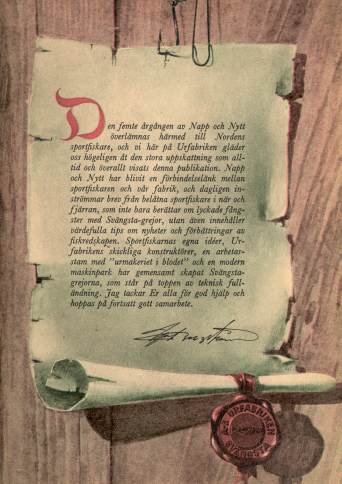 Den femte årgången av Napp och Nytt
överlämnas härmed till Nordens
sportfiskare, och vi här på Urfabriken gläder
oss högeligen åt den stora uppskattning som all-
tid och överallt visats denna publikation. Napp
och Nytt har blivit en förbindelselänk mellan
sportfiskaren och vår fabrik, och dagligen in-
strömmar brev från belåtna sportfiskare i när och
fjärran, som inte bara berättar om lyckade fång-
ster med Svängsta-grejor, utan även innehåller
värdefulla tips om nyheter och förbättringar av
fiskredskapen. Sportfiskarnas egna idéer, Ur-
fabrikens skickliga konstruktörer, en arbetar-
stam med "urmakeriet i blodet" och en modern
maskinpark har gemensamt skapat Svängsta-
grejorna, som står på toppen av teknisk full-
ändning. Jag tackar Er alla för god hjälp och
hoppas på fortsatt gott samarbete.
A-B URFABRIKEN
SVÄNGSTA